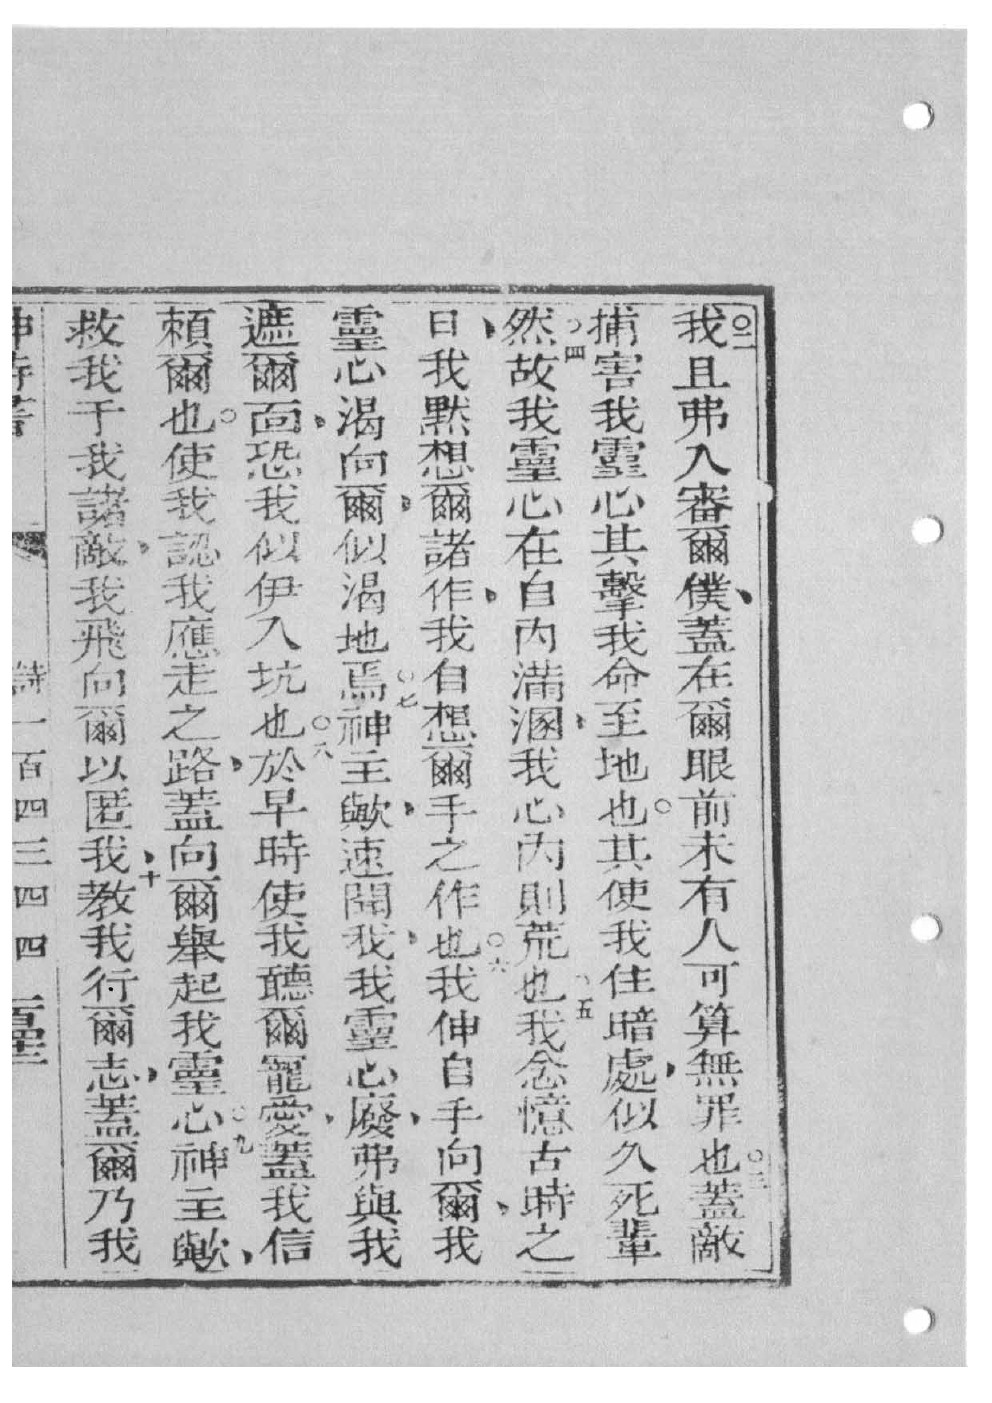 〇二我且弗入審爾僕、蓋在爾眼前未有人可算無罪也〇三蓋敵
捕害我靈心其擊我命至地也〇其使我住暗處、似久死輩
然〇四故我靈心在自內滿溷、我心內則荒也〇五我念憶古時之
日、我默想爾諸作、我自想爾手之作也〇六我伸自手向爾、我
靈心渴向爾、似渴地焉〇七神主歟、速聞我、我靈心廢、弗與我
遮爾面、恐我似伊入坑也〇八於早時使我聽爾寵愛、蓋我信
賴爾也〇使我認我應走之路、蓋向爾舉起我靈心〇九神主歟、
救我于我諸敵、我飛向爾以匿我、十教我行爾志、蓋爾乃我
神詩書 詩一百四三四四 一百望